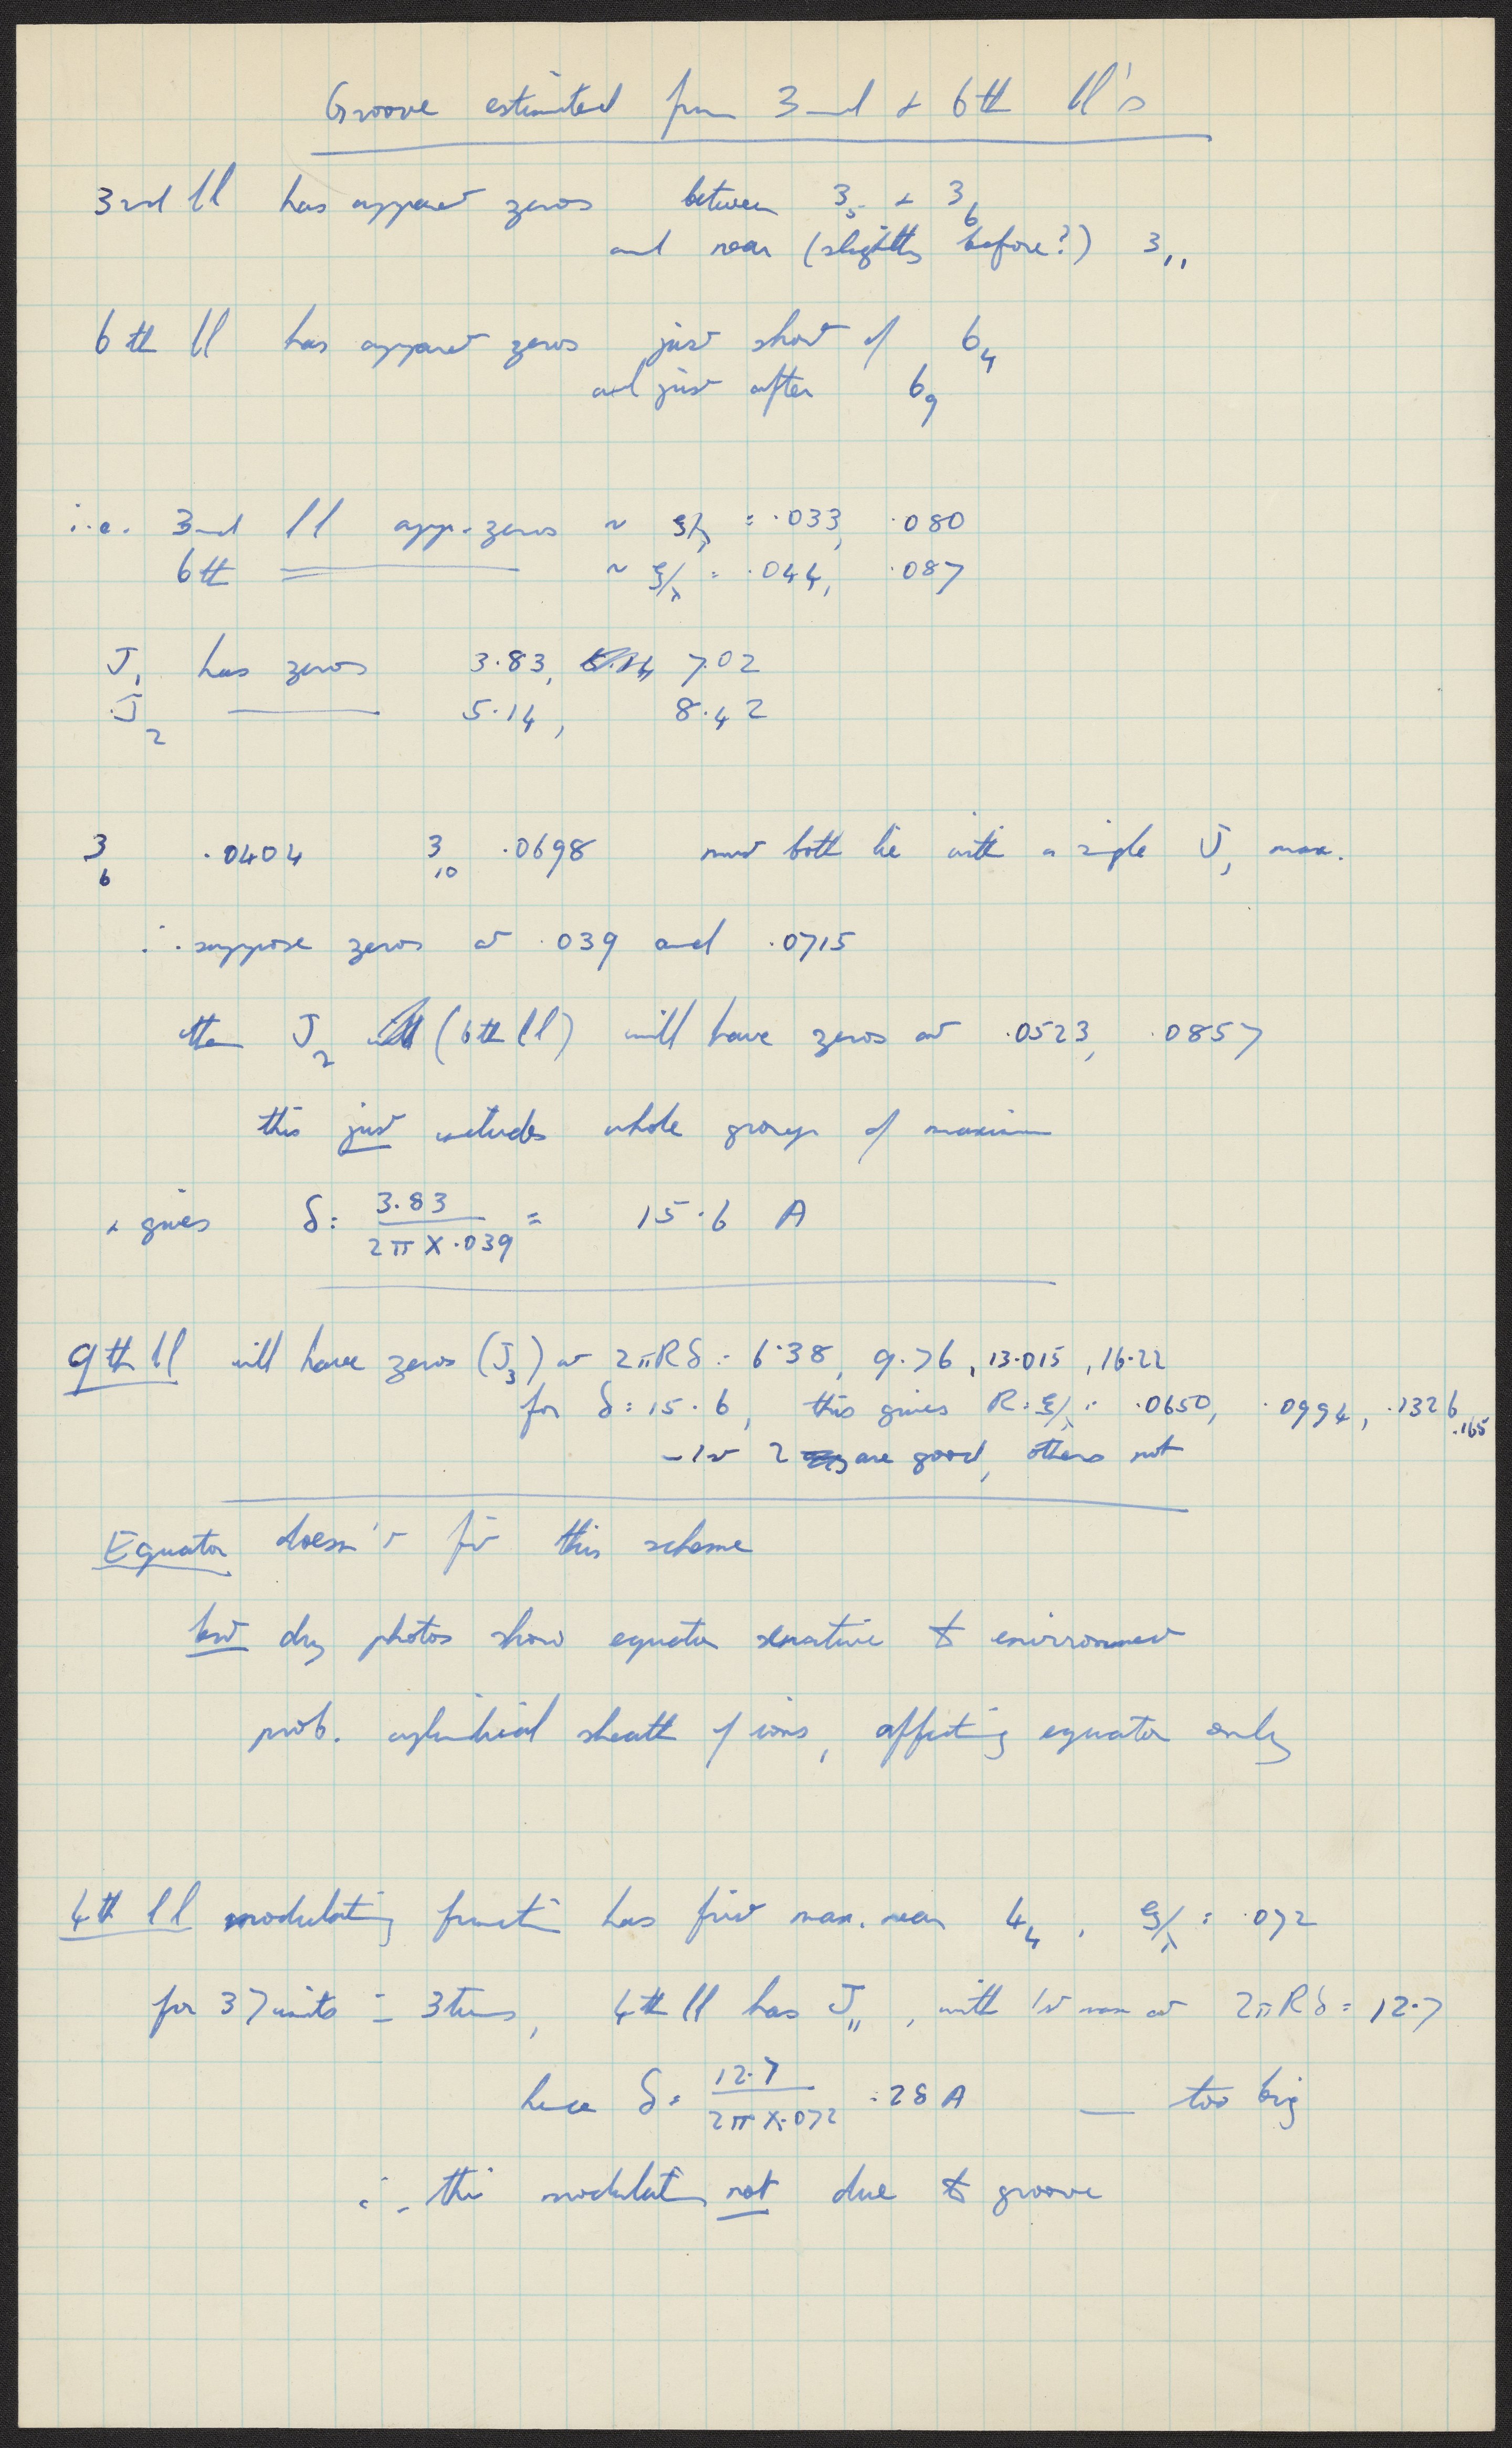 Groove estimated from 3rd + 6th ll's
3rd ll has apparent zeros between 3₅ + 3₆
and near (slightly before?) 3₁₁
6th ll has apparent zeros just short of 6₄
and just after 6₉
i.e. 3rd ll app. zeros ~ ξ/λ = .033, .080
6th ——— ~ ξ/λ = .044, .087
J₁ has zeros 3.83, 7.02
J₂ ——— 5.14, 8.42
3₆ .0404 3₁₀ .0698 must both lie with a single J₁ max.
∴ suppose zeros at .039 and .0715
then J₂ (6th ll) will have zeros at .0523, .0857
this just includes whole group of maxima
+ gives δ = 3.83 / 2π × .039 = 15.6 A
9th ll will have zeros (J₃) at 2πRδ = 6.38, 9.76, 13.015, 16.22
for δ = 15.6, this gives R = ξ/λ = .0650, .0994, .1326, .165
– 1st 2 are good, others not
Equator doesn't fit this scheme
but dry photos show equator sensitive to environment
prob. cylindrical sheath of ions, affecting equator only
4th ll modulating function has first max. near 4₄, ξ/λ = .072
for 37 units = 3 turns, 4th ll has J₁₁, with 1st max at 2πRδ = 12.7
hence δ = 12.7 / 2π × .072 = 28 A — too big
∴ this modulation not due to groove